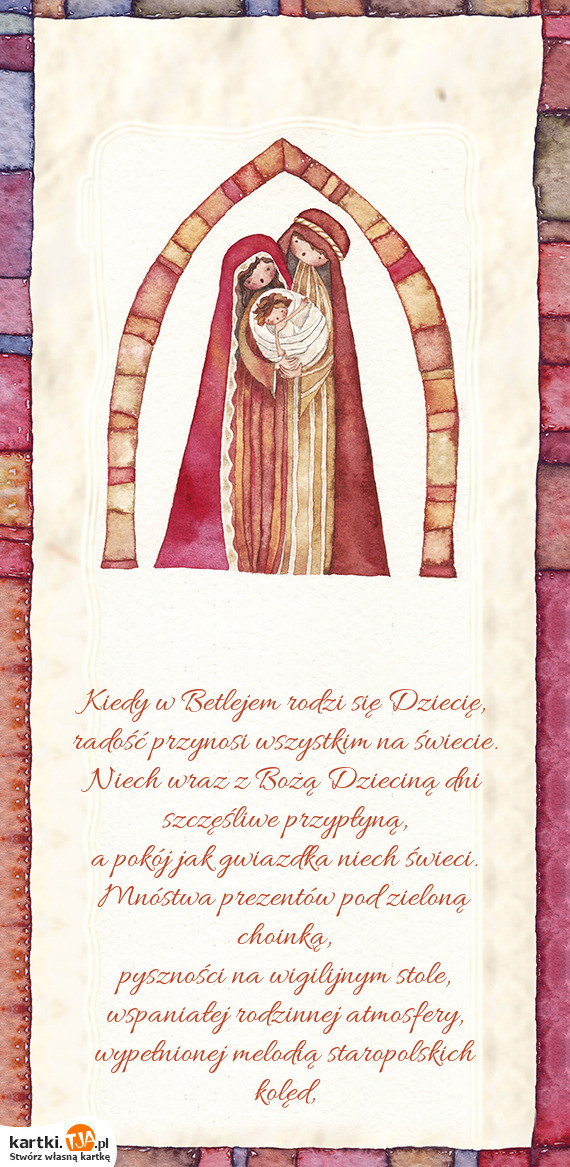 Kiedy w Betlejem rodzi się Dziecię,
radość przynosi wszystkim na świecie.
Niech wraz z Bożą Dzieciną dni
szczęśliwe przypłyną,
a pokój jak gwiazdka niech świeci.
Mnóstwa prezentów pod zieloną
choinką,
pyszności na wigilijnym stole,
wspaniałej rodzinnej atmosfery,
wypełnionej melodią staropolskich
kolęd,
kartki.TJA.pl
Stwórz własną kartkę